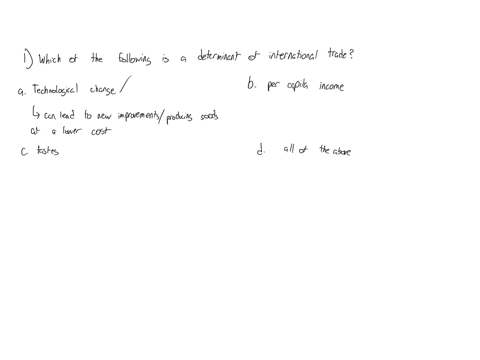 1) Which of the following is a determinant of international trade?
a. Technological change /
b. per capita income
↳ can lead to new improvements/producing goods
at a lower cost
c. tastes
d. all of the above